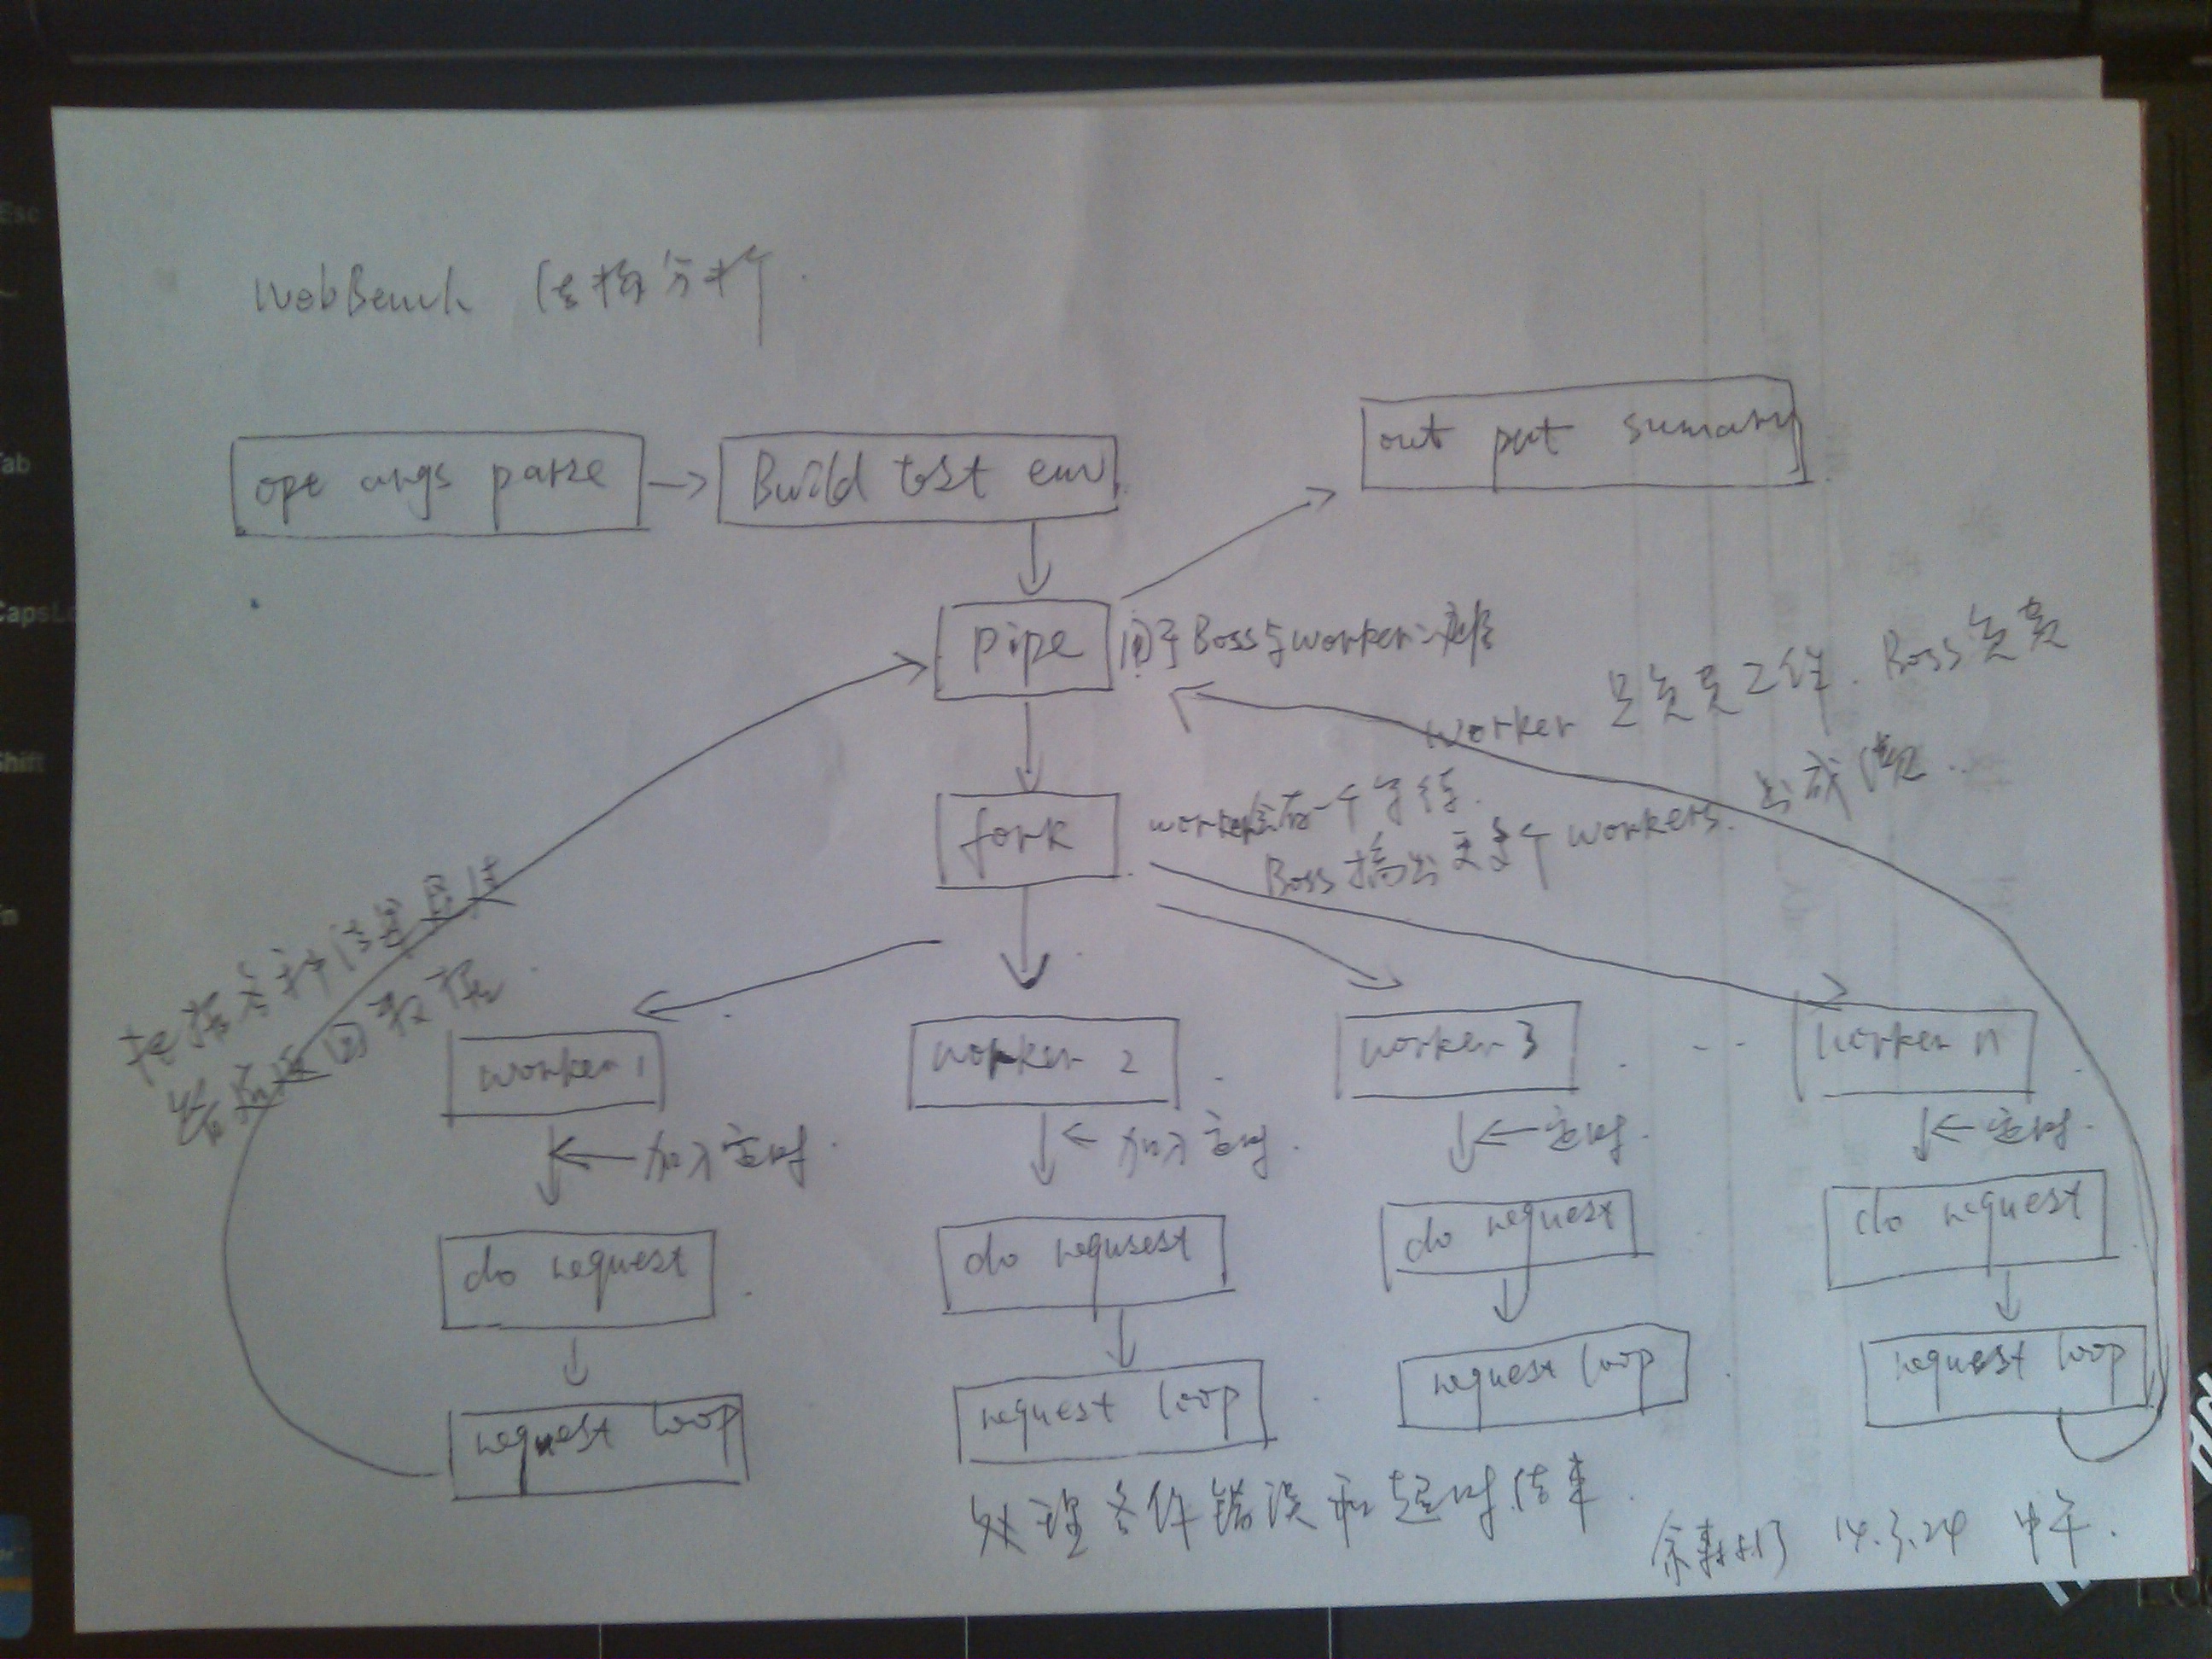 WebBench 结构分析.
opt args parse
Build test env
out put sumary
pipe
用于Boss与worker之通信
worker 只负责工作. Boss负责
fork
worker只有一个写
Boss搞出更多个 workers.
出成绩.
把各种信息
管道 回数据.
worker 1
worker 2
worker 3
worker n
加入定时.
加入定时.
定时.
定时.
do request
do requsest
do request
do request
request loop
request loop
request loop
request loop
处理各件错误和超时结束.
14.3.24 中午.
Esc
Tab
CapsLo
Shift